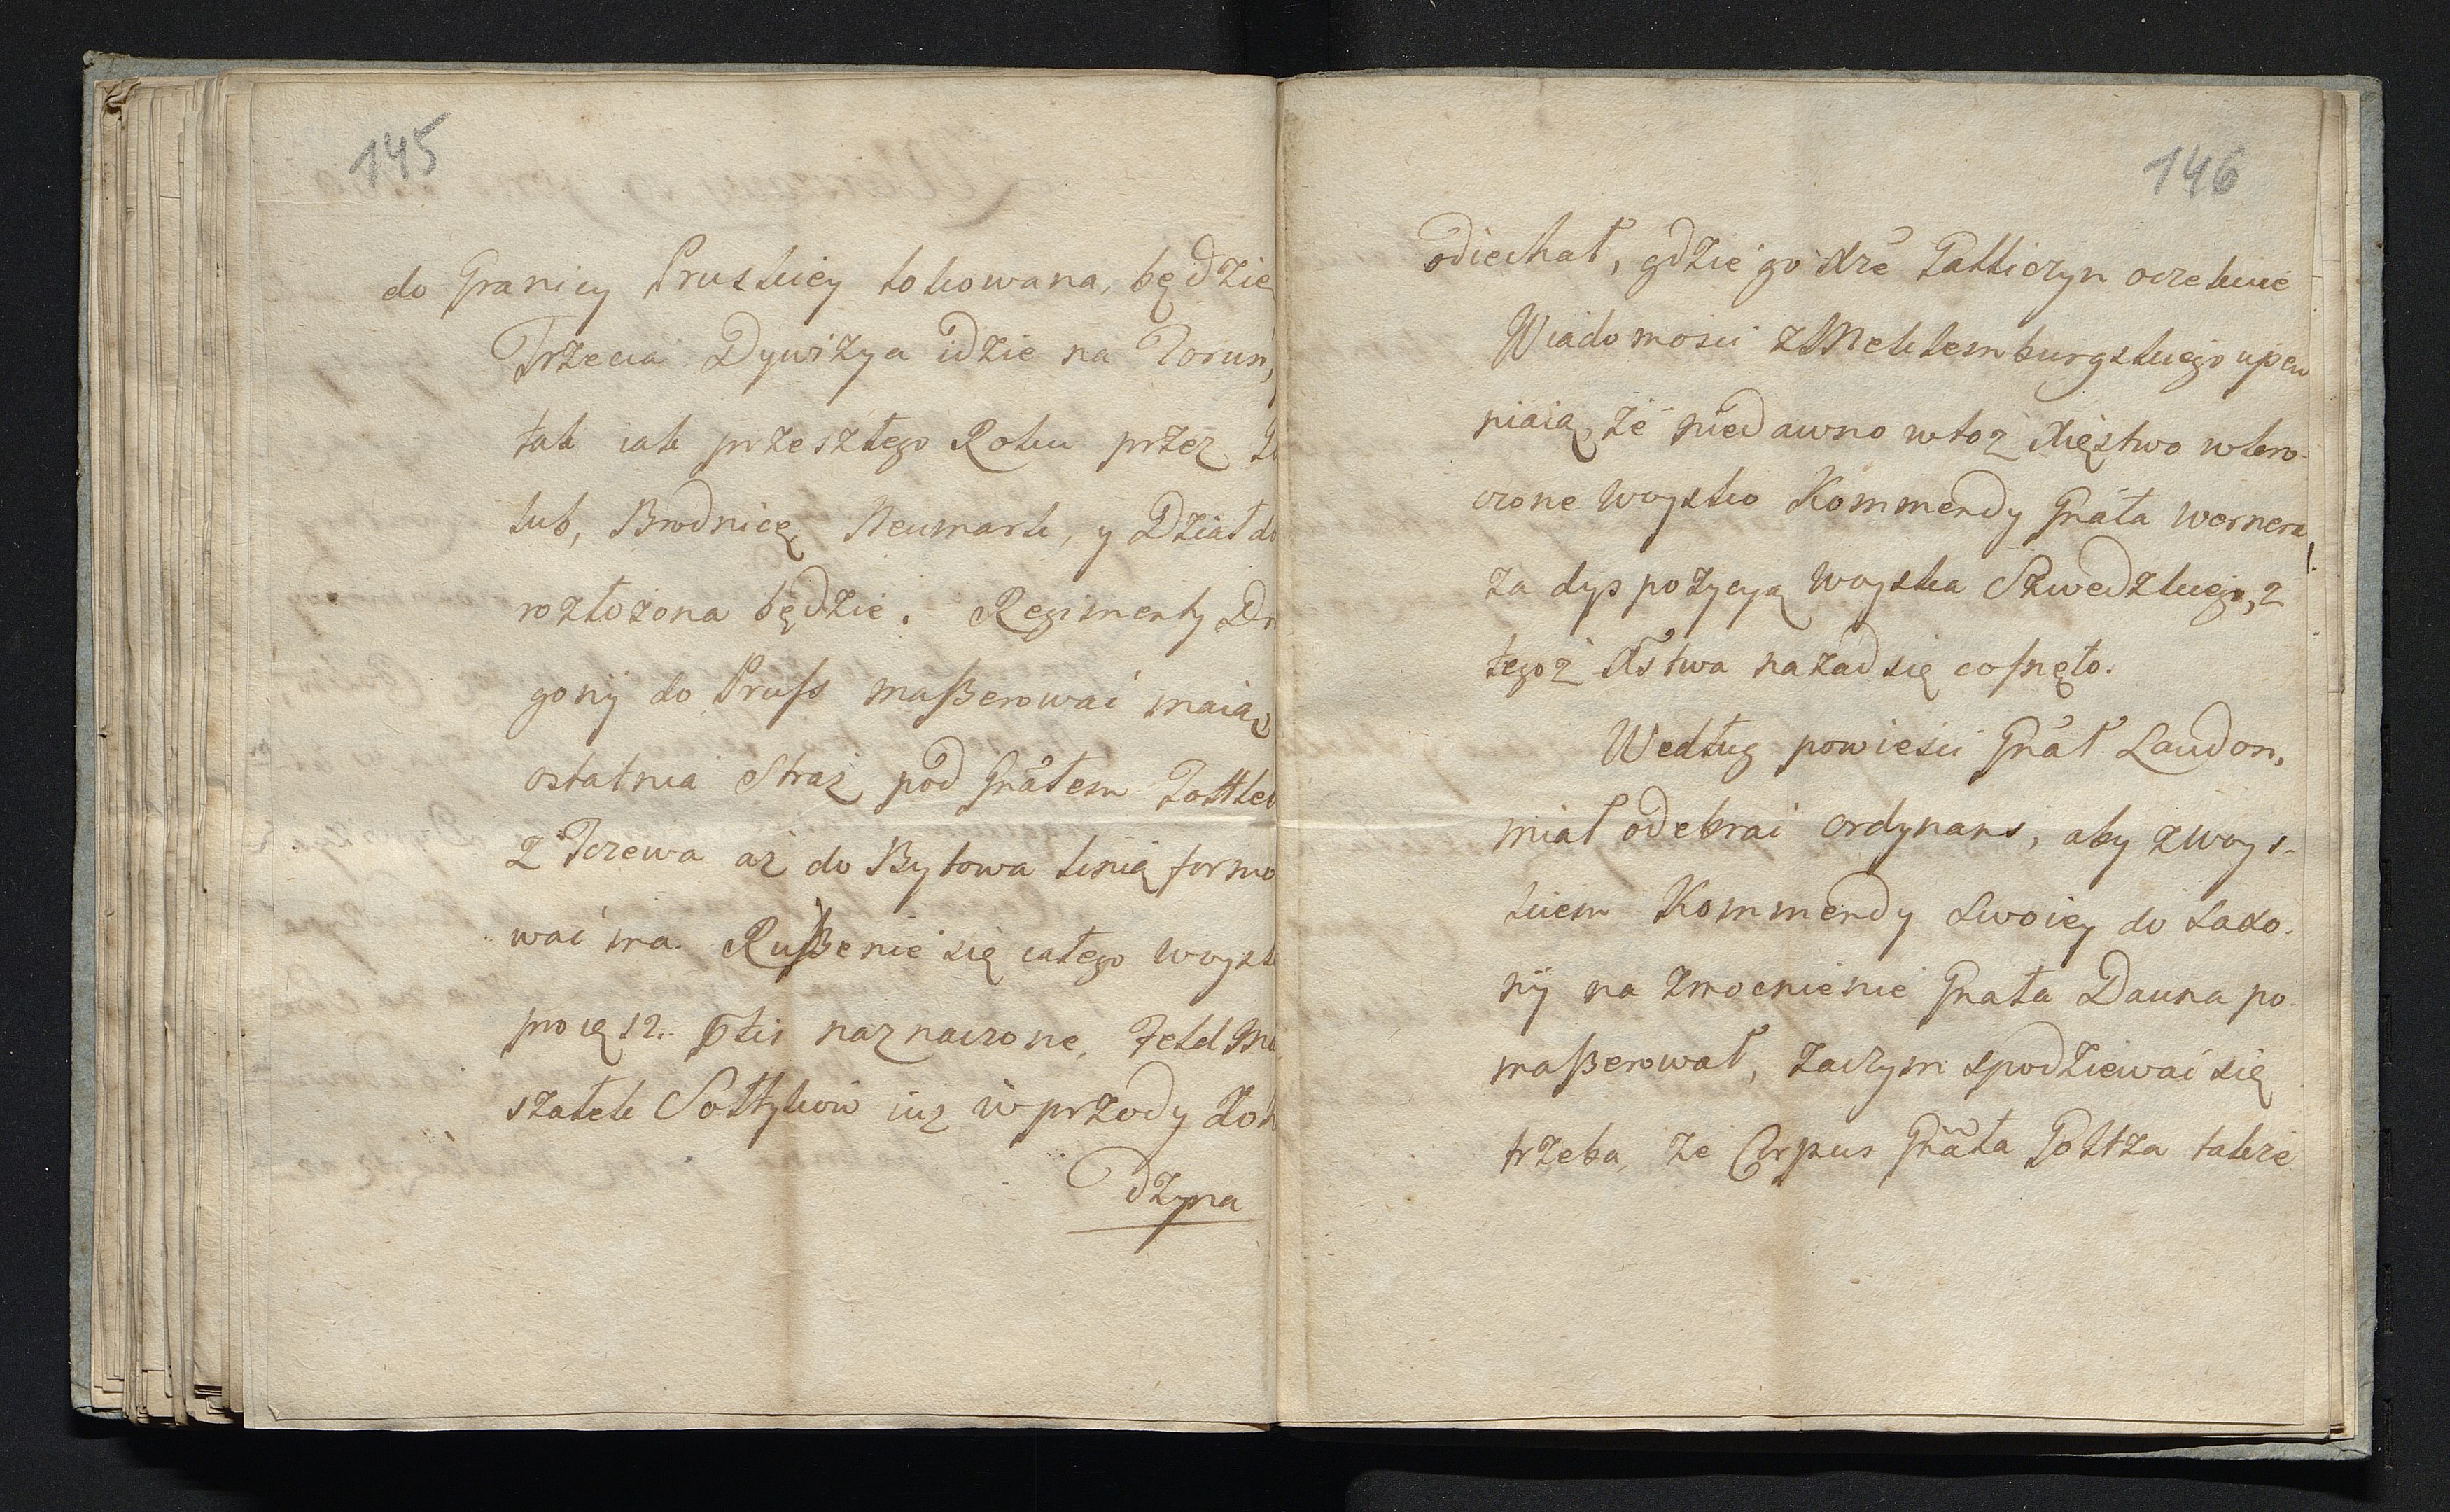 145
do Granicy Pruskiey lokowana, będzie
Trzecia Dywizya idzie na Torun,
tak iak przeszłego Roku przez
lub, Brodnicę, Neumark, y Działdo
rozłożona będzie. Regimenty Dra
gonÿ do Pruss maszerować maią
ostatnia Straż pod Gnałem Tottleb
z Tczewa aż do Bytowa linią formo
wać ma. Ruszenie się całego woysk
pro 12. naznaczone, Feld Ma
szałek Sołtykow iuż w przody
dzyna
146
odiechał, gdzie go Xże Galliczyn oczekuie
Wiadomosci z Meklemburgskiego upew
niaią, że niedawno w toż Xięstwo wkro-
czone woysko Kommendy Gnała Wernera,
za dyspozycyą woyska Szwedzkiego, z
tegoż Xstwa nazad się cofnęło.
Według powiesci Gnał. Laudon,
miał odebrać ordynans, aby z woys-
kiem Kommendy swoiey do Saxo.
nÿ na zmocnienie Gnała Dauna po
maszerował, zaczym spodziewać się
trzeba, że Corpus Gnała Goltza także